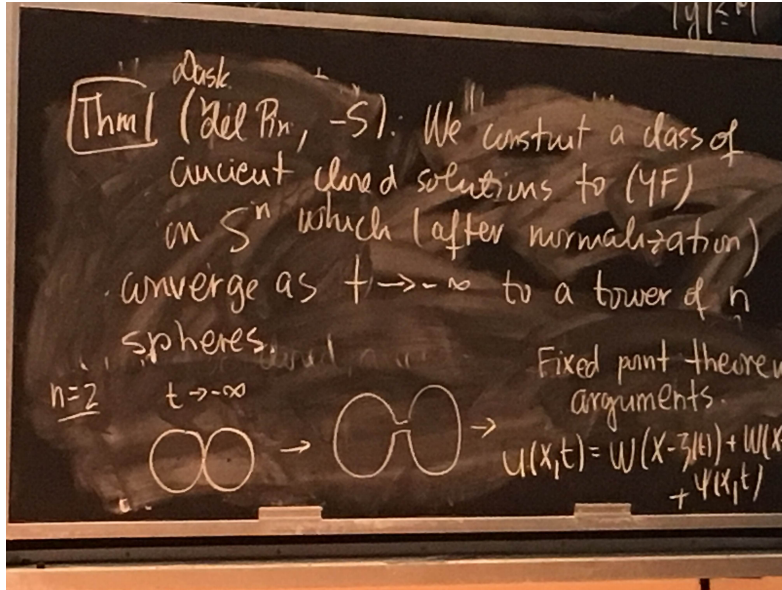 |y|≤M
Dask.
Thm (del Pin, -S): We construt a class of
ancient closed solutions to (YF)
on Sⁿ which (after normalization)
converge as t→-∞ to a tower of n
spheres.
n=2 t→-∞
→ →
Fixed point theorem
arguments.
u(x,t) = W(x-ξ(t)) + W(x
+ ψ(x,t)